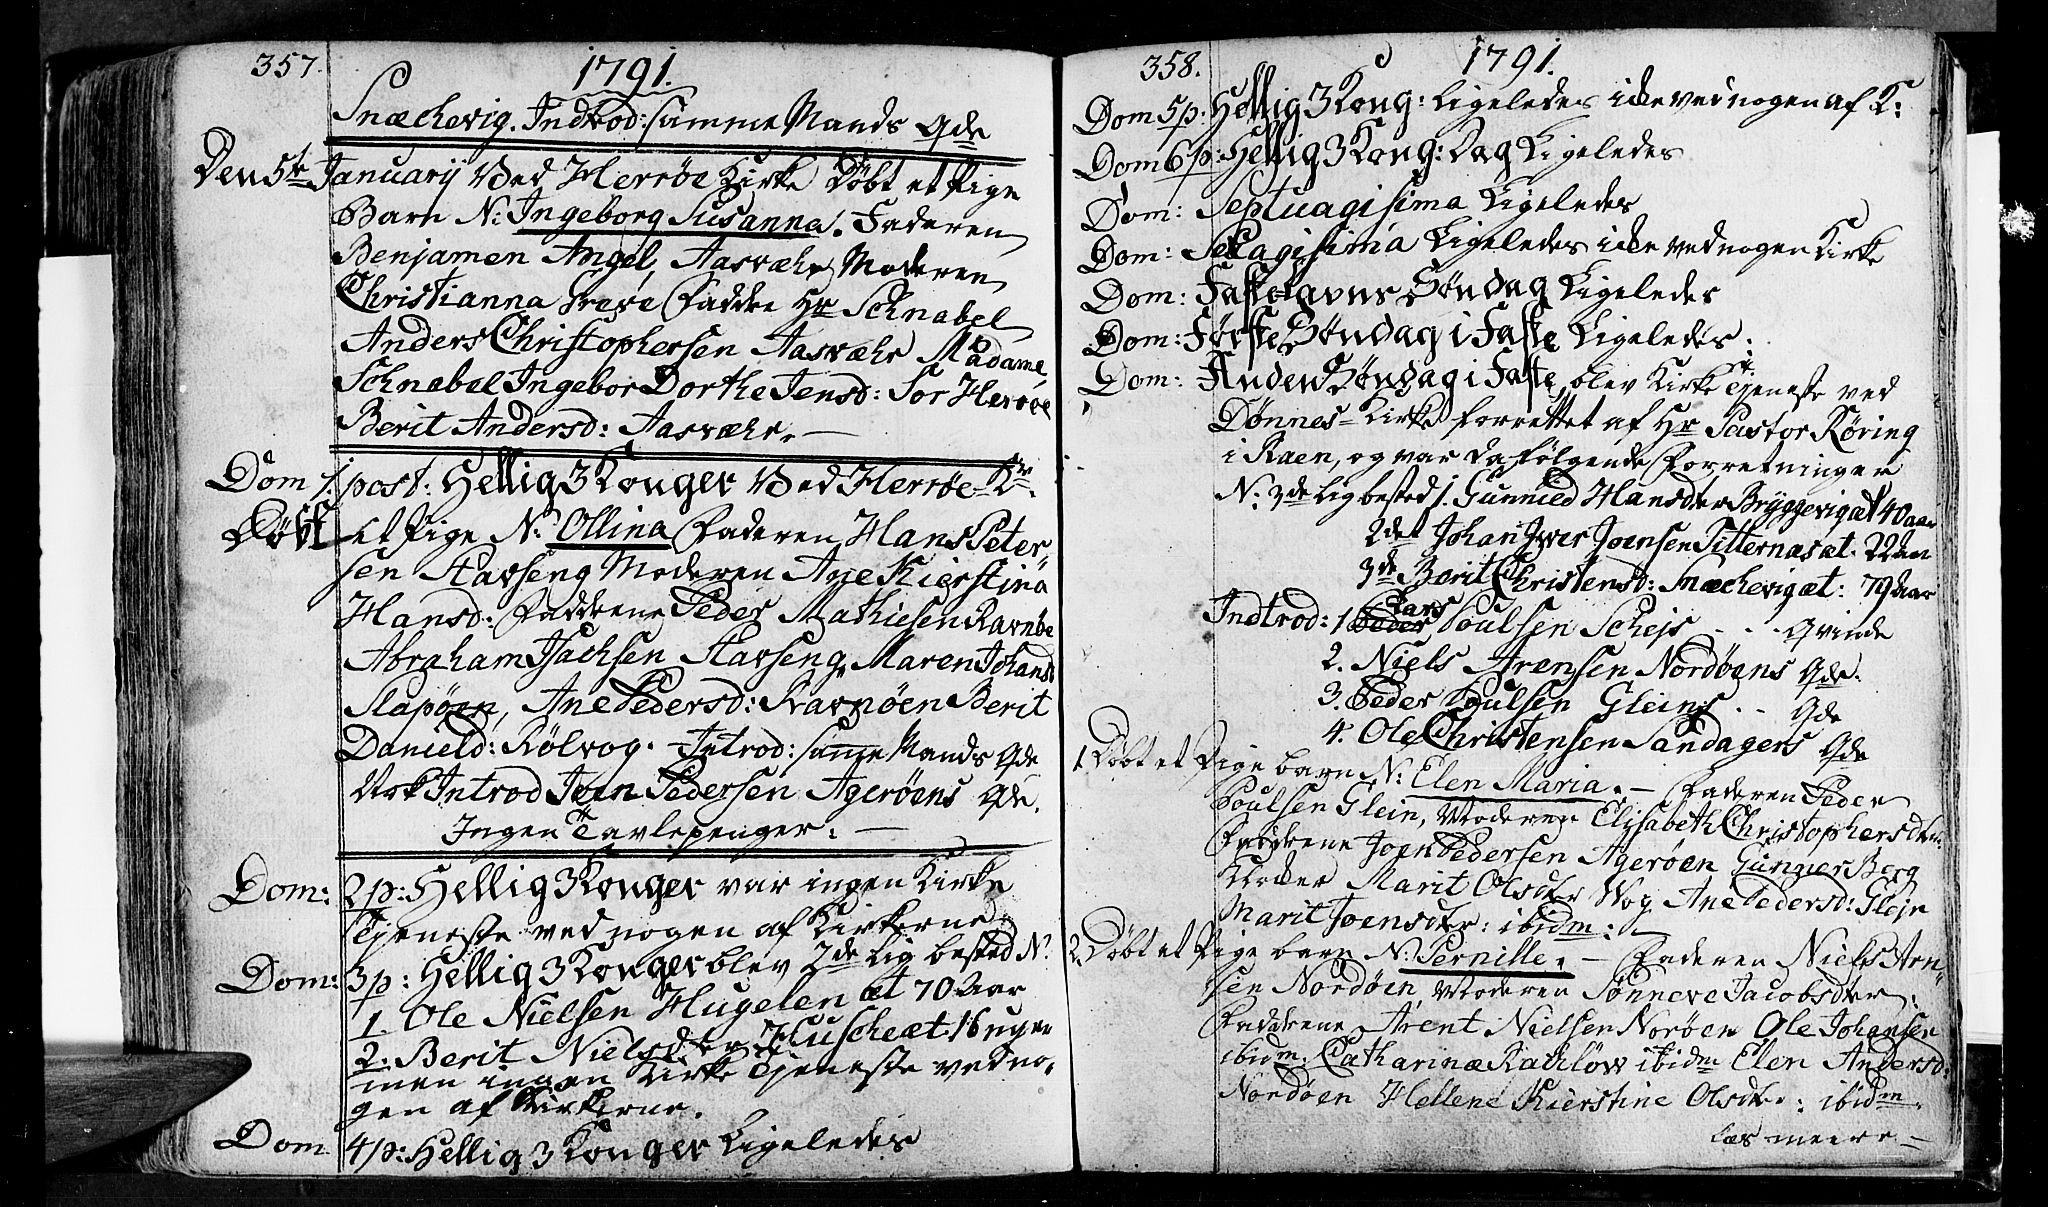 357. 1791.
Snæchevig. Indtrod: samme Mands Qde
Den 5te January Ved Herrøe Kirke Døbt et Pige
Barn N: Ingeborg Susanna. Faderen
Benjamen Angel, Aasvæhr Moderen
Christianna Faddre Hr Schnabel
Anders Christophersen Aasvæhr Madame
Schnabel Ingebor Dorthe Jensd: Sør Herrøe
Berit Andersd: Aasvæhr. —
Dom 1. post: Hellig 3 Konger Ved Herrøe K:
Døbt et Pige N: Ollina Faderen Hans Peter
sen Stavseng Moderen Ane Kierstina
Hansd: Faddrene Peder Mathiesen Ravnøe
Abraham Isachsen Stavseng, Maren Johansd
Slapøen, Ane Pedersd: Skarvøen Berit
Danield: Rølvog. Introd: samme Mands Qde
Nok Introd Joen Pedersen Agerøens Qde.
Ingen Tavlepenger. —
Dom: 2 p: Hellig 3 Konger var ingen Kirke
Tjeneste ved nogen af Kirkerne.
Dom: 3 p: Hellig 3 Konger blev 2de Lig bested N:
1. Ole Nielsen Hugelen æt 70 Aar
2. Berit Nielsdter Husche æt. 16 uger
men ingen Kirke Tjeneste ved no-
gen af Kirkerne.
Dom. 4 p: Hellig 3 Konger Ligeledes
358. 1791.
Dom 5 p: Hellig 3 Kong: Ligeledes icke ved nogen af K:
Dom 6 p: Hellig 3 Kong: Dag Ligeledes
Dom: Septuagisima Ligeledes
Dom: Sexagisima Ligeledes icke ved nogen Kirke
Dom: Fastelavns Søndag Ligeledes
Dom: Første Søndag i Faste Ligeledes.
Dom: Anden Søndag i Faste, blev Kirke Tjeneste ved
Dønnes Kirke forrettet af Hr Pastor Røring
i Raen, og var da følgende Forretninger
N: 3de Lig bested 1. Gunnild Hansdter Bryggevig æt 40 aar
2det Johan Iver Joensen Titternæs æt. 22 aar
3de Berit Christensd: Snæchevig æt: 79 Aar
Indtrod: 1 Lars Poulsen Schejs . . . Qvinde
2. Niels Arensen Nordøens Qde.
3. Peder Poulsen Gleins . . Qde
4. Ole Christensen Sandagers Qde
1 Døbt et Pige barn N: Elen Maria. — Faderen Peder
Poulsen Glein, Moderen Elisabeth Christophersdter:
Faddrene Joen Pedersen Agerøen Gunner Berg
Klocker Marit Olsdter Wog Ane Pedersd: Glejn
Marit Joensdter: ibidm: —
2. Døbt et Pige barn N: Pernille. — Faderen Niels Arn-
sen Nordøen, Moderen Sønneve Jacobsdter:
Faddrene Arent Nielsen Norøen Ole Johansen
ibidm. Catharinæ Rachløw ibidm Elen Andersd:
Nordøen Hellene Kierstine Olsdtr: ibidm.
læs meere —